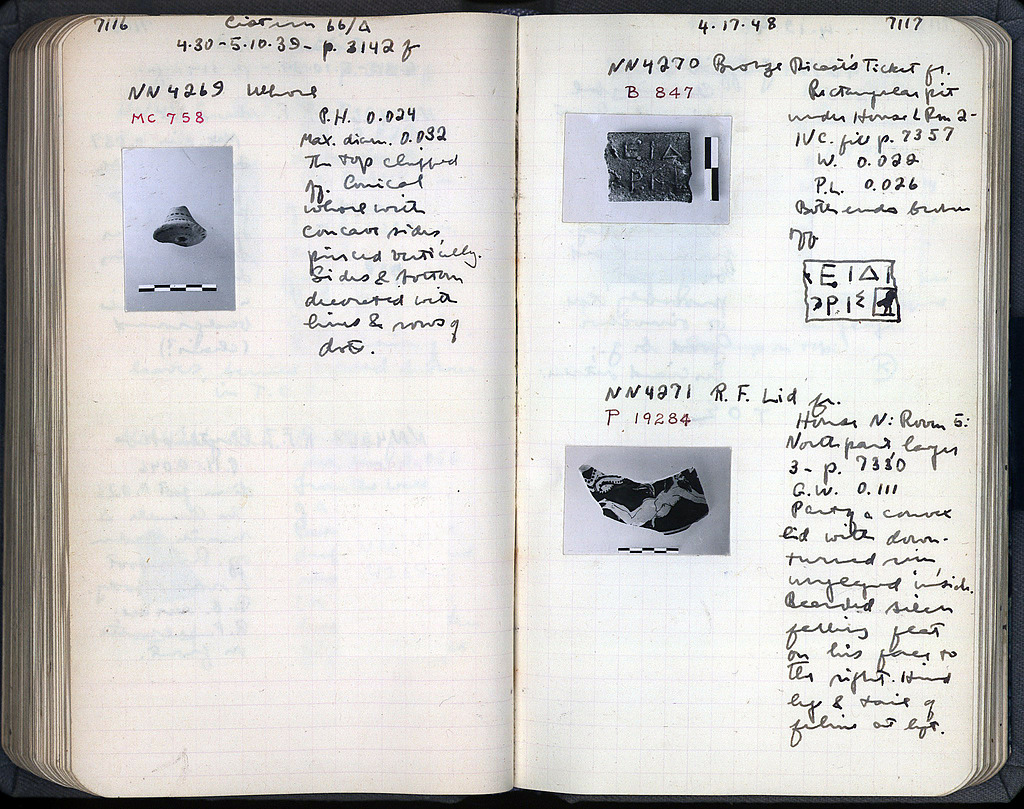 7116
Cistern 66/Δ
4.30-5.10.39 - p. 3142 ff
NN 4269 Whorl
MC 758
P.H. 0.024
Max. diam. 0.032
The top chipped
off. Conical
whorl with
concave sides,
pierced vertically.
Sides & bottom
decorated with
lines & rows of
dots.
4.17.48
7117
NN4270 Bronze Dicast's Ticket fr.
B 847
Rectangular pit
under House L Rm 2-
IV C. fill p. 7357
W. 0.022
P.L. 0.026
Both ends broken
off
ΕΙΔ
ΡΙ
ΕΙΔΙ
ΡΙΣ
NN4271 R.F. Lid fr.
P 19284
House N: Room 5:
North part, layer
3 - p. 7330
G.W. 0.111
Part of a convex
lid with down-
turned rim,
unglazed inside.
Bearded silen
falling flat
on his face to
the right. Hind
legs & tail of
feline at left.